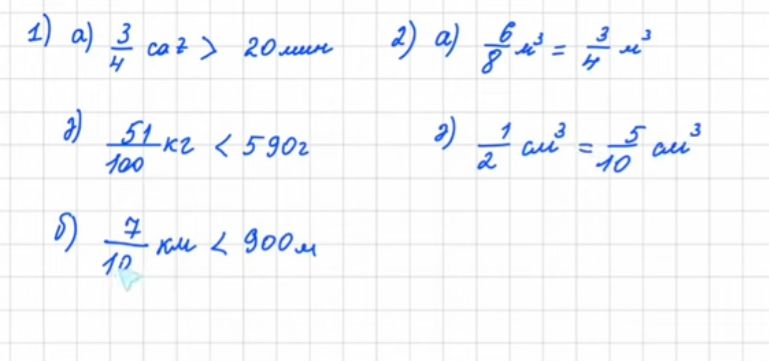 1) а) 3/4 сағ > 20 мин
ә) 51/100 кг < 590 г
б) 7/10 км < 900 м
2) а) 6/8 м³ = 3/4 м³
ә) 1/2 см³ = 5/10 см³